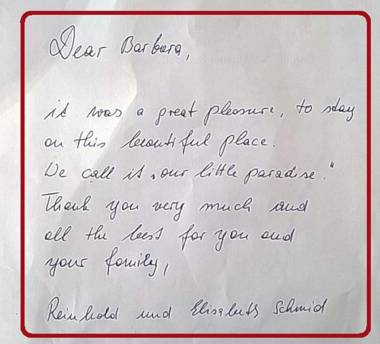 Dear Barbara,
it was a great pleasure, to stay
on this beautiful place.
We call it „our little paradise."
Thank you very much and
all the best for you and
your family,
Reinhold und Elisabeth Schmid